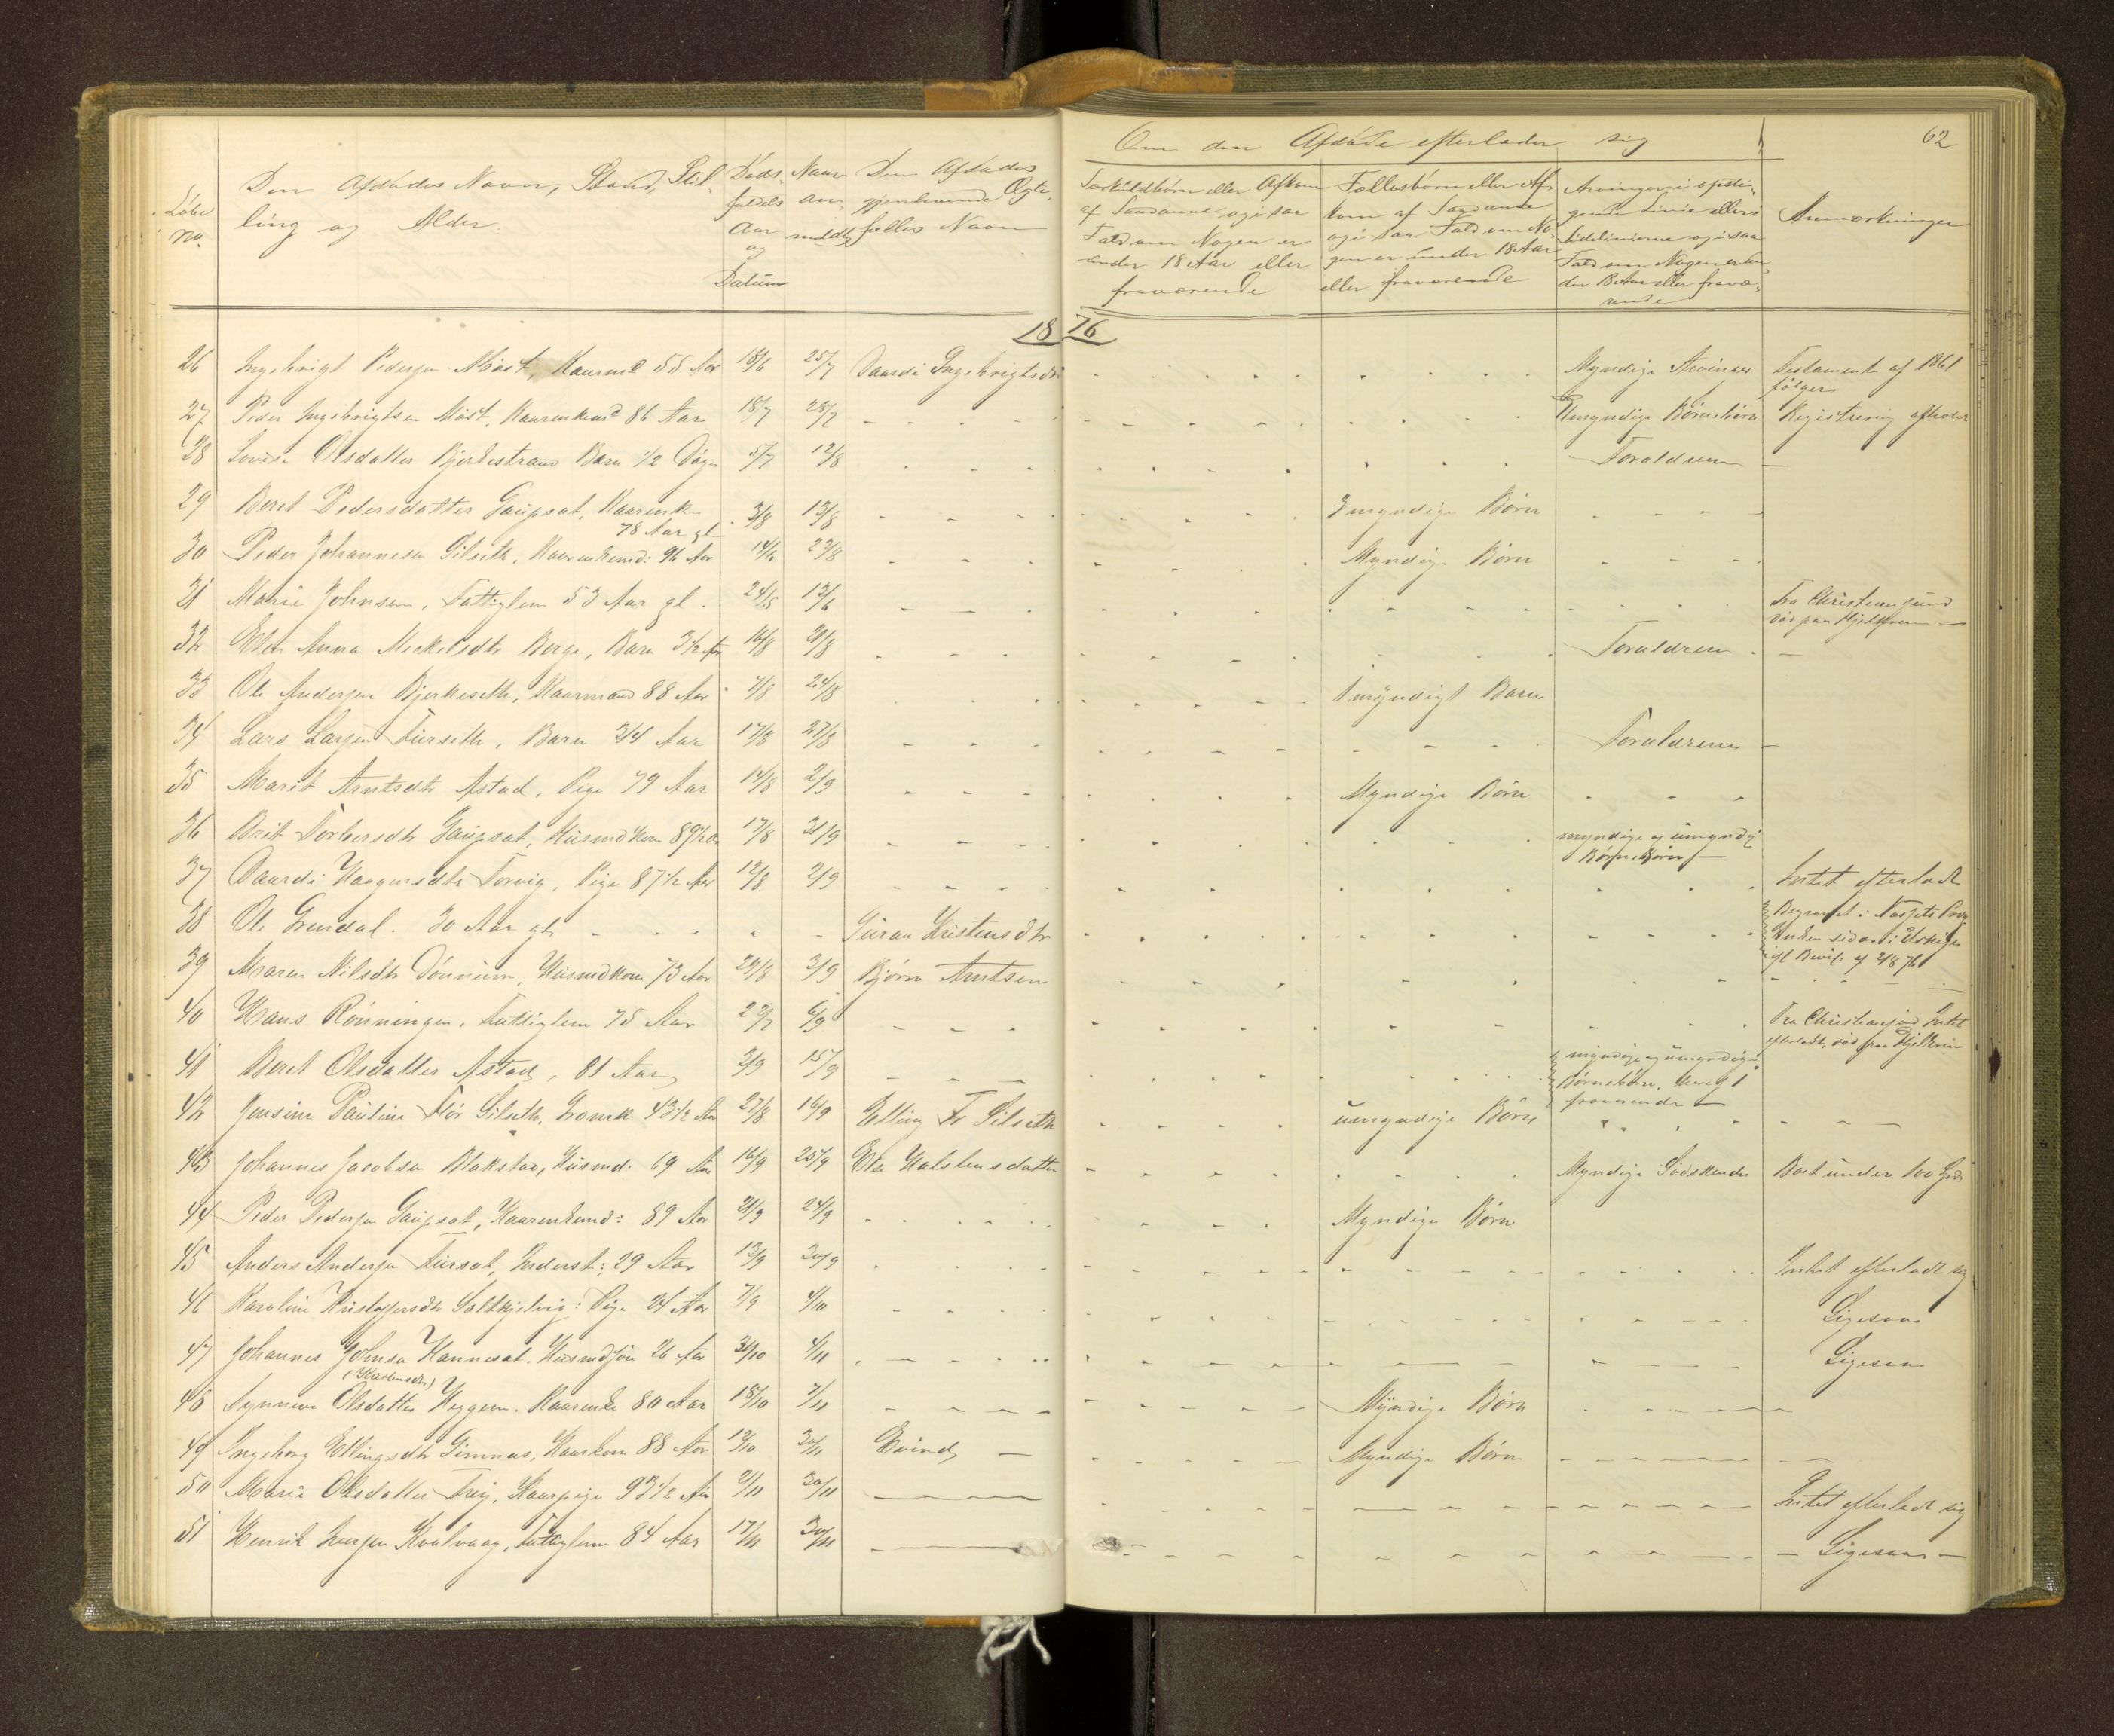 62
Om den Afdøde efterlader sig
Løbe No.
Den Afdødes Navn, Stand, Stilling og Alder.
Dødsfaldets Aar og Datum
Naar anmeldt
Den Afdødes gjenlevende Ægtefælles Navn
Særkuldbørn eller Afkom af Saadanne og i saa Fald om Nogen er under 18 Aar eller fraværende
Fællesbørn eller Afkom af Saadanne og i saa Fald om Nogen er under 18 Aar eller fraværende
Arvinger i opstigende Linie eller i Sidelinierne og i saa Fald om Nogen er under 18 Aar eller fraværende
Anmærkninger
1876
26 Ingebrigt Pedersen Møst, Kaarmd 55 Aar 18/6 25/7 Daardi Ingebrigtsdtr Myndige Arvinger Testament af 1861 følger
27 Peder Ingebrigtsen Møst, Kaarenkemd 86 Aar 18/7 28/7 Umyndige Børnebørn Registrering afholdt
28 Lovise Olsdatter Bjerkestrand Barn 1/2 Døgn 5/7 12/8 Forældrene
29 Beret Pedersdatter Gaupsat, Kaarenke 78 Aar gl 3/8 13/8 3 myndige Børn
30 Peder Johannesen Gilseth, Kaarenkemd: 96 Aar 14/6 23/8 Myndige Børn
31 Marie Johnsen, Fattiglem 53 Aar gl. 24/5 13/6 Fra Christiansund død paa
32 Ellen Anna Mickelsdtr Berge, Barn 3 1/2 Aar 16/8 21/8 Forældrene
33 Ole Andersen Bjerkeseth, Kaarmand 88 Aar 7/8 24/8 1 myndigt Barn
34 Lars Larsen Furseth, Barn 3/4 Aar 17/8 27/8 Forældrene
35 Marit Arntsdtr Astad, Pige 79 Aar 14/8 2/9 Myndige Børn
36 Brit Torbersdtr Gaupsat, Husmdkone 89 1/2 Aar 17/8 31/9 myndige og umyndige Børnebørn
37 Daardi Haagensdtr Torvig, Pige 87 1/2 Aar 12/8 2/9 Intet efterladt
38 Ole Grendal. 30 Aar gl. Guran Kristensdtr Begravet i
af 2/8 76
39 Maren Nilsdtr Dønnum, Husmdkone 73 Aar 29/8 3/9 Bjørn Arntsen
40 Hans Rønningen, Fattiglem 75 Aar 22/7 6/9 Fra Christiansund Intet efterladt, død paa
41 Beret Olsdatter Astad, 81 Aar 3/9 15/9 myndige og umyndige Børnebørn, hvoraf 1 fraværende
42 Jensine Pauline Flor Gilseth, 43 1/2 Aar 27/8 16/9 Elling Fr Gilseth umyndige Børn
43 Johannes Jacobsen Blakstad, Husmd. 69 Aar 16/9 25/9 Ellen Halstensdatter Myndige Sødskende Boet under 100 Spd
44 Peder Pedersen Gaupsat, Kaarenkemd: 89 Aar 21/9 24/9 Myndige Børn
45 Anders Andersen Fursat, Inderst: 29 Aar 13/9 30/9 Intet efterladt sig
46 Karoline Kristoffersdtr Saltkjelvig: Pige 24 Aar 7/9 4/10 Ligesaa
47 Johannes Johnsen Hannesat. Husmdsøn 26 Aar 30/10 4/11 Ligesaa
48 Synneve Olsdatter Heggem. Kaarenke 80 Aar 18/10 7/11 Myndige Børn
49 Ingeborg Ellingsdtr Gimnæs, Kaarkone 88 Aar 12/10 30/11 Eivind Myndige Børn
50 Marie Olsdatter Frei, Kaarpige 93 1/2 Aar 2/11 30/11 Intet efterladt sig
51 Henrik Iversen Kvalvaag, Fattiglem 84 Aar 17/11 30/11 Ligesaa